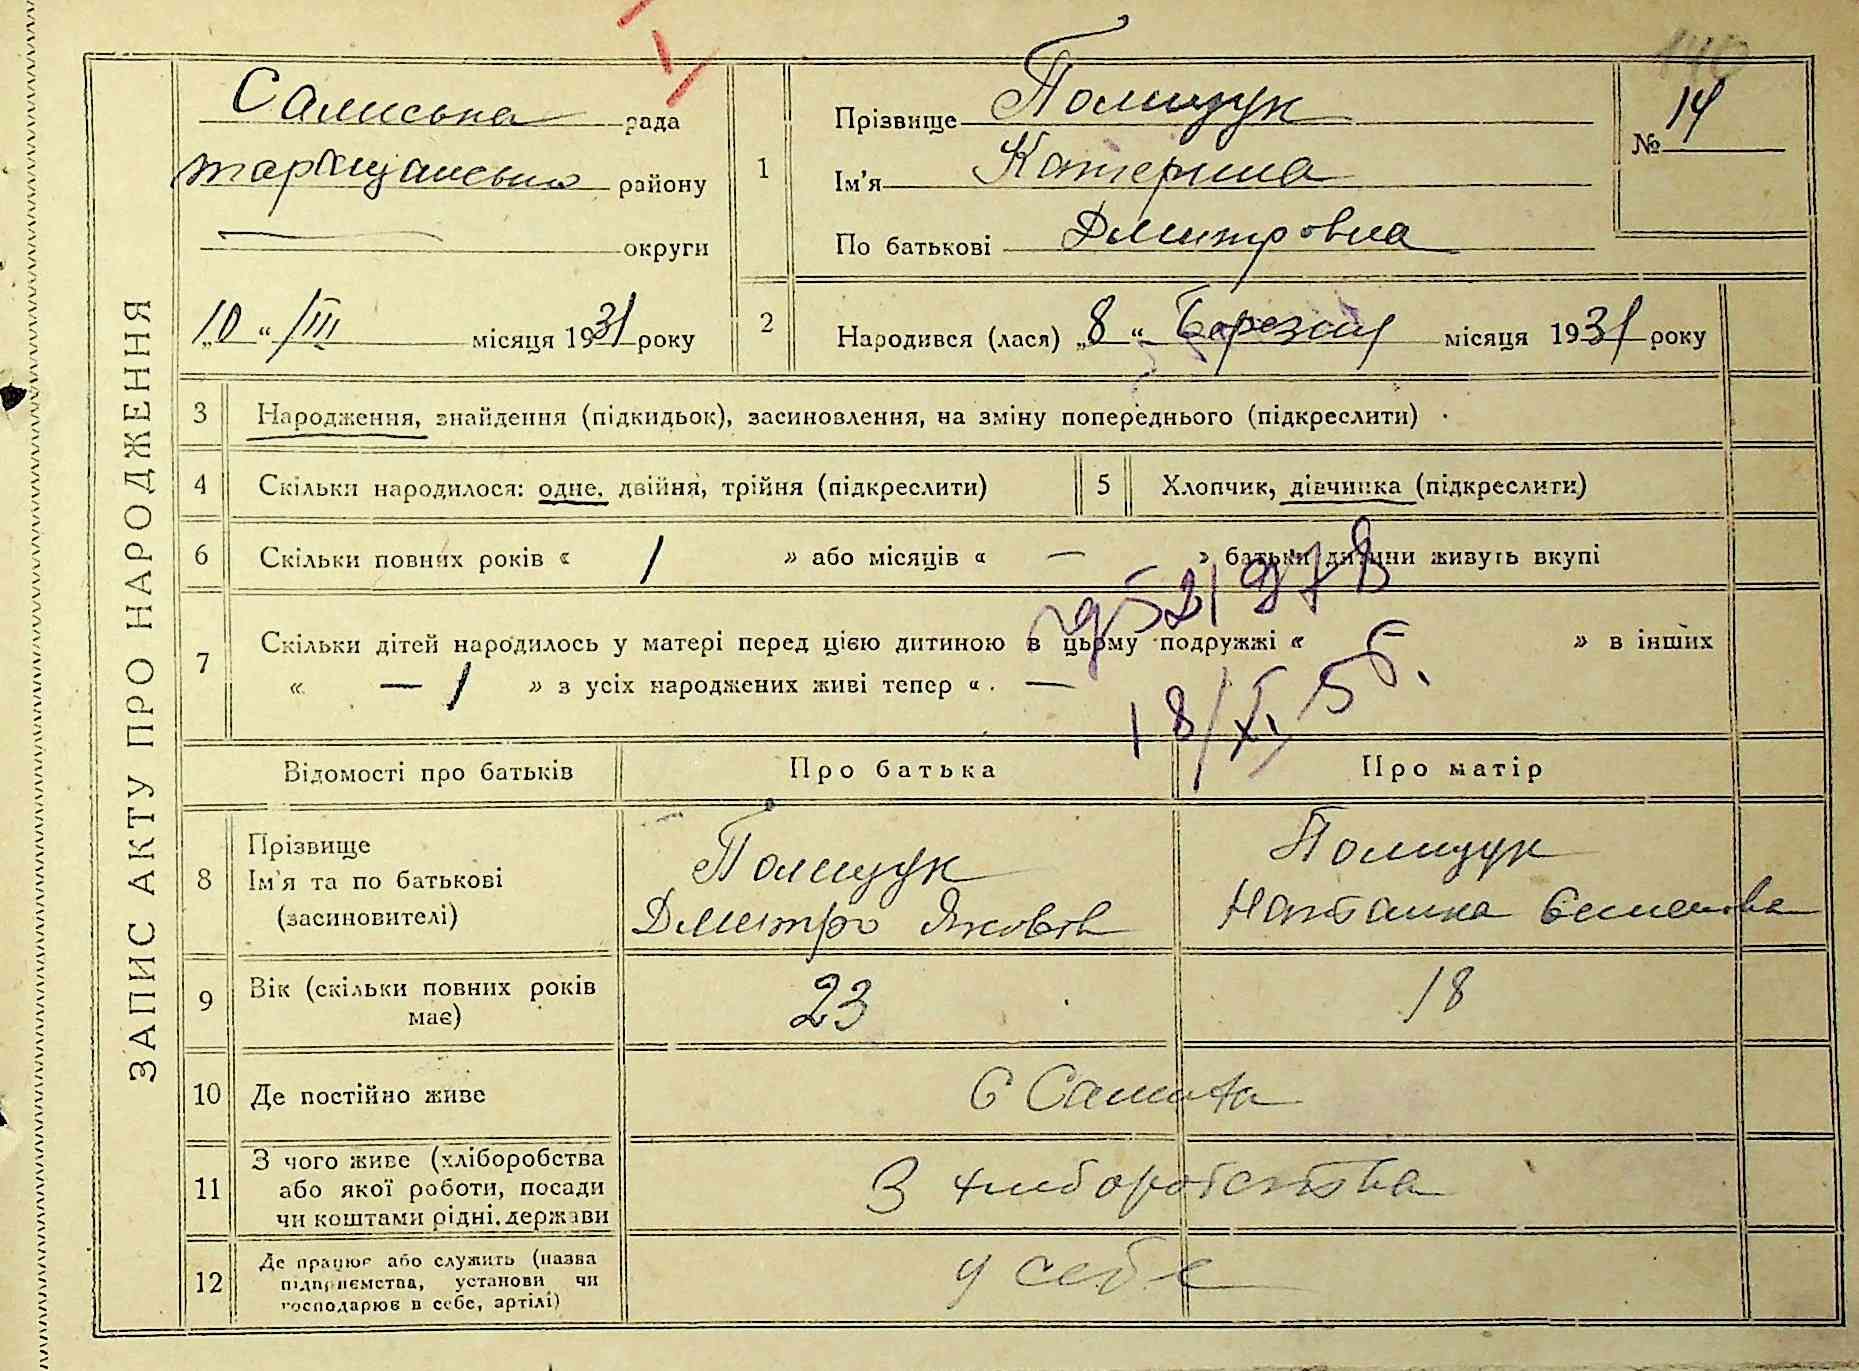 140
ЗАПИС АКТУ ПРО НАРОДЖЕННЯ
рада
району
округи
„10“ /III місяця 1931 року
1
Прізвище Полищук
Ім'я Катерина
По батькові Дмитровна
№ 14
2 Народився (лася) „8“ Березня місяця 1931 року
3 Народження, знайдення (підкидьок), засиновлення, на зміну попереднього (підкреслити)
4 Скільки народилося: одне, двійня, трійня (підкреслити)
5 Хлопчик, дівчинка (підкреслити)
6 Скільки повних років « 1 » або місяців « — » батьки дитини живуть вкупі
7 Скільки дітей народилось у матері перед цією дитиною в цьому подружжі « » в інших
« — 1 » з усіх народжених живі тепер « . —
521978
18/XI 55.
Відомості про батьків
Про батька
Про матір
8 Прізвище
Ім'я та по батькові
(засиновителі)
Полищук
Дмитро Яковів
Полищук
Наталка Семенова
9 Вік (скільки повних років має)
23
18
10 Де постійно живе
С
11 З чого живе (хліборобства
або якої роботи, посади
чи коштами рідні. держави
З хлиборобства
12 Де працює або служить (назва
підприємства, установи чи
господарює в себе, артілі)
у себе